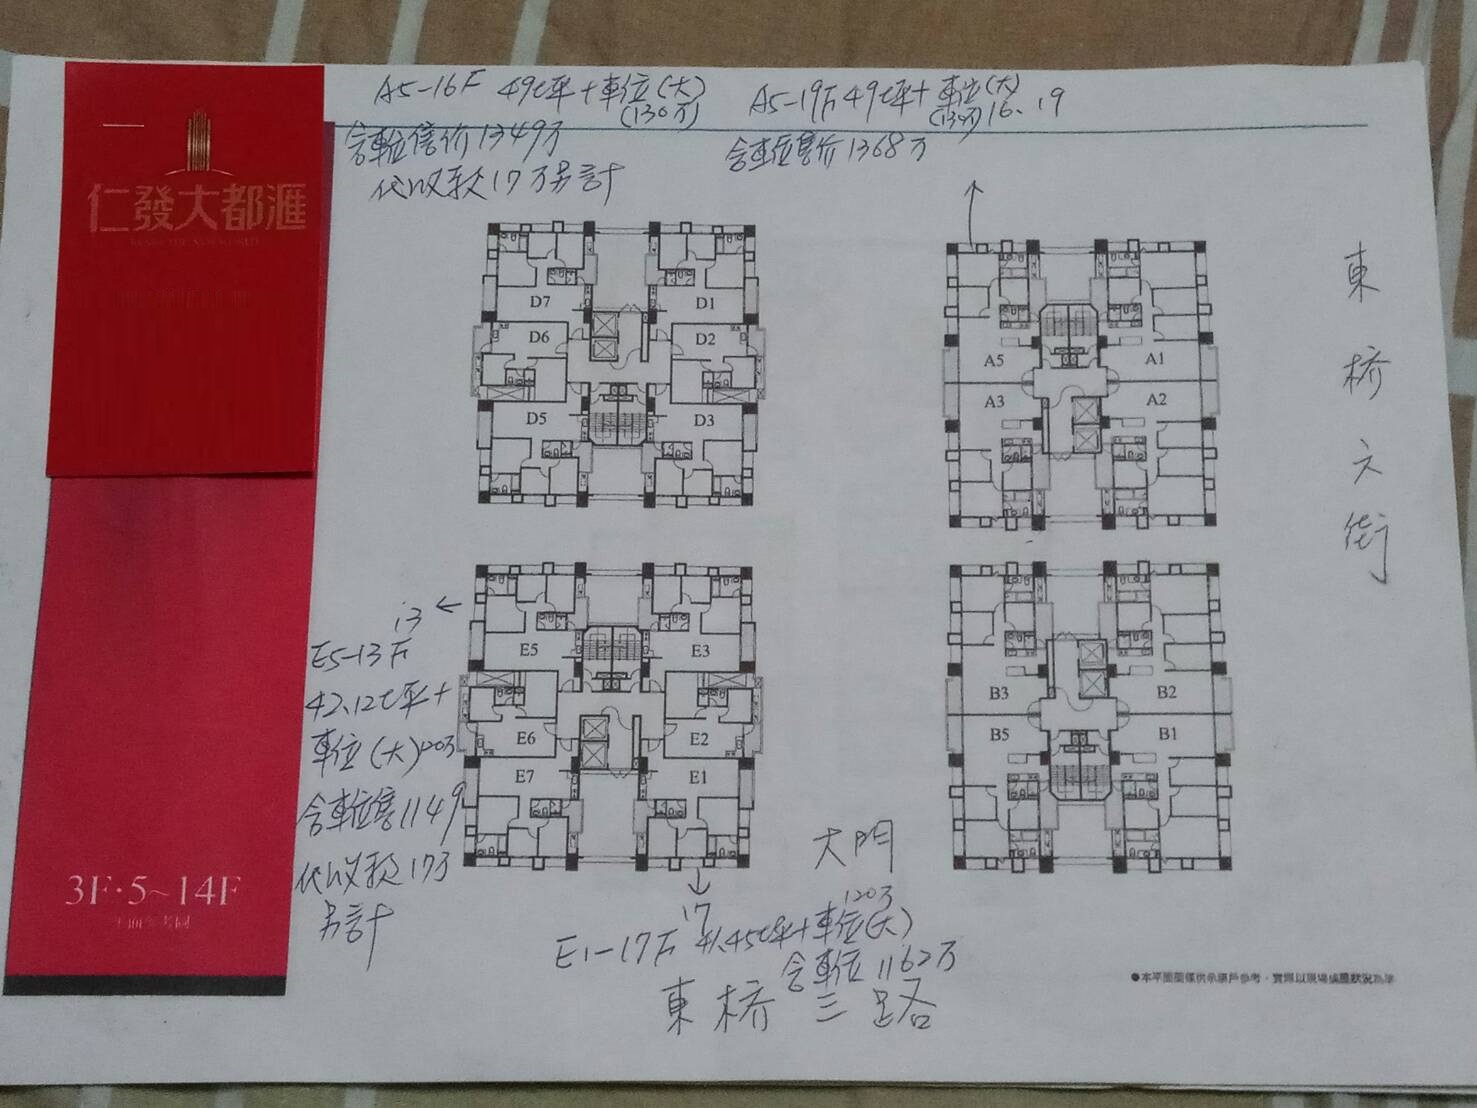 仁發大都滙
3F·5~14F
A5-16F 49坪+車位(大)
(130万)
含車位售价1349万
代收款17万另計
A5-19F 49坪+車位(大)
(130万) 16、19
含車位售价1368万
D7
D1
D6
D2
D5
D3
A5
A1
A3
A2
東桥六街
i3
E5-13F
42.12坪+
車位(大)120万
含車位售1149
代收款17万
另計
E5
E3
E6
E2
E7
E1
B3
B2
B5
B1
大門
i7
120万
E1-17F 41.45坪+車位(大)
含車位1162万
東桥三路
●本平面圖僅供承購戶參考，實際以現場偱圖狀況為準